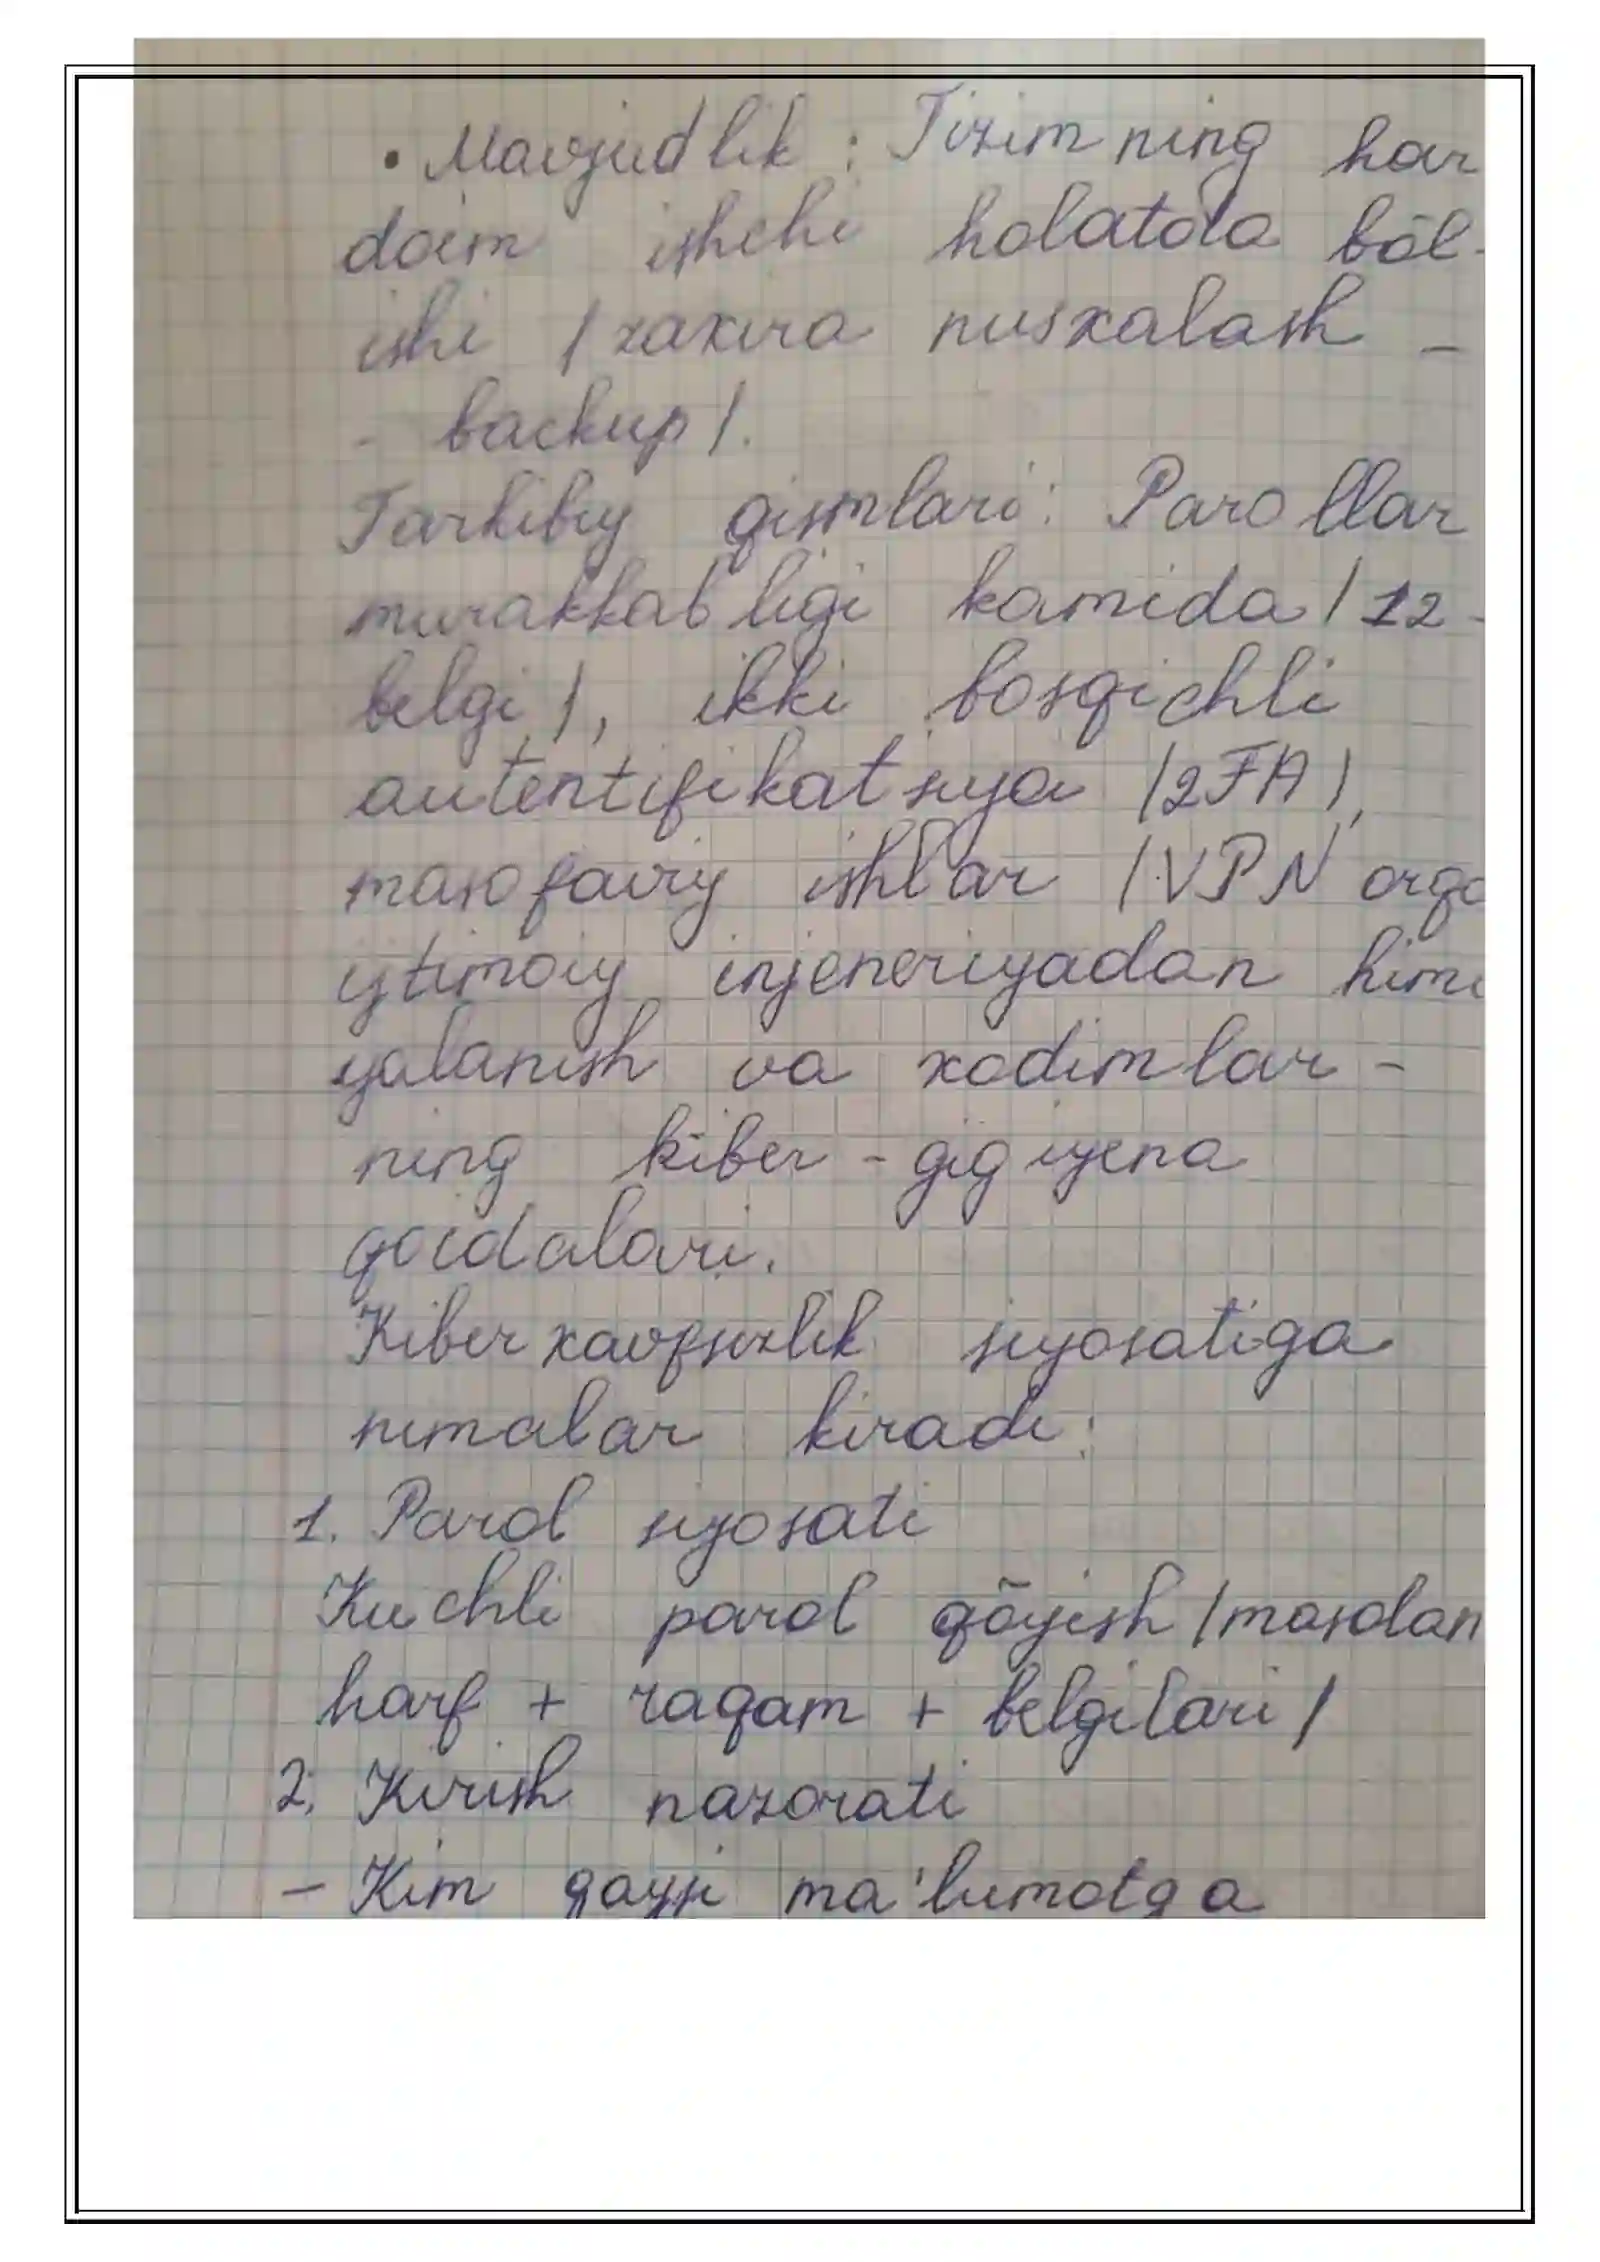 • Mavjudlik : Tizimning har
doim ishchi holatda bōl-
ishi / zaxira nusxalash -
- backup /.
Tarkibiy qismlari: Parollar
murakkabligi kamida / 12 -
belgi /, ikki bosqichli
autentifikatsiya / 2FA /,
masofaviy ishlar / VPN orqa
ijtimoiy injeneriyadan himo
yalanish va xodimlar -
ning kiber - gigiyena
qoidalari.
Kiberxavfsizlik siyosatiga
nimalar kiradi:
1. Parol siyosati
Kuchli parol qōyish / masalan
harf + raqam + belgilari /
2. Kirish nazorati
- Kim qaysi ma'lumotga